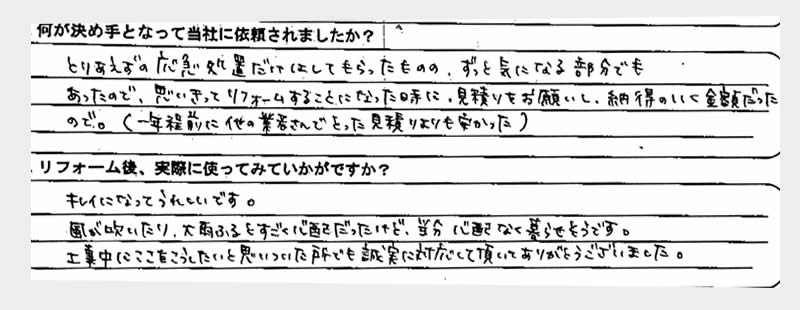 何が決め手となって当社に依頼されましたか？
とりあえずの応急処置だけはしてもらったものの、ずっと気になる部分でも
あったので、思いきってリフォームすることになった時に、見積りをお願いし、納得のいく金額だった
ので。(一年程前に他の業者さんでとった見積りよりも安かった)
リフォーム後、実際に使ってみていかがですか？
キレイになってうれしいです。
風が吹いたり、大雨ふるとすごく心配だったけど、当分心配なく暮らせそうです。
工事中にここをこうしたいと思いついた所でも誠実に対応して頂いてありがとうございました。